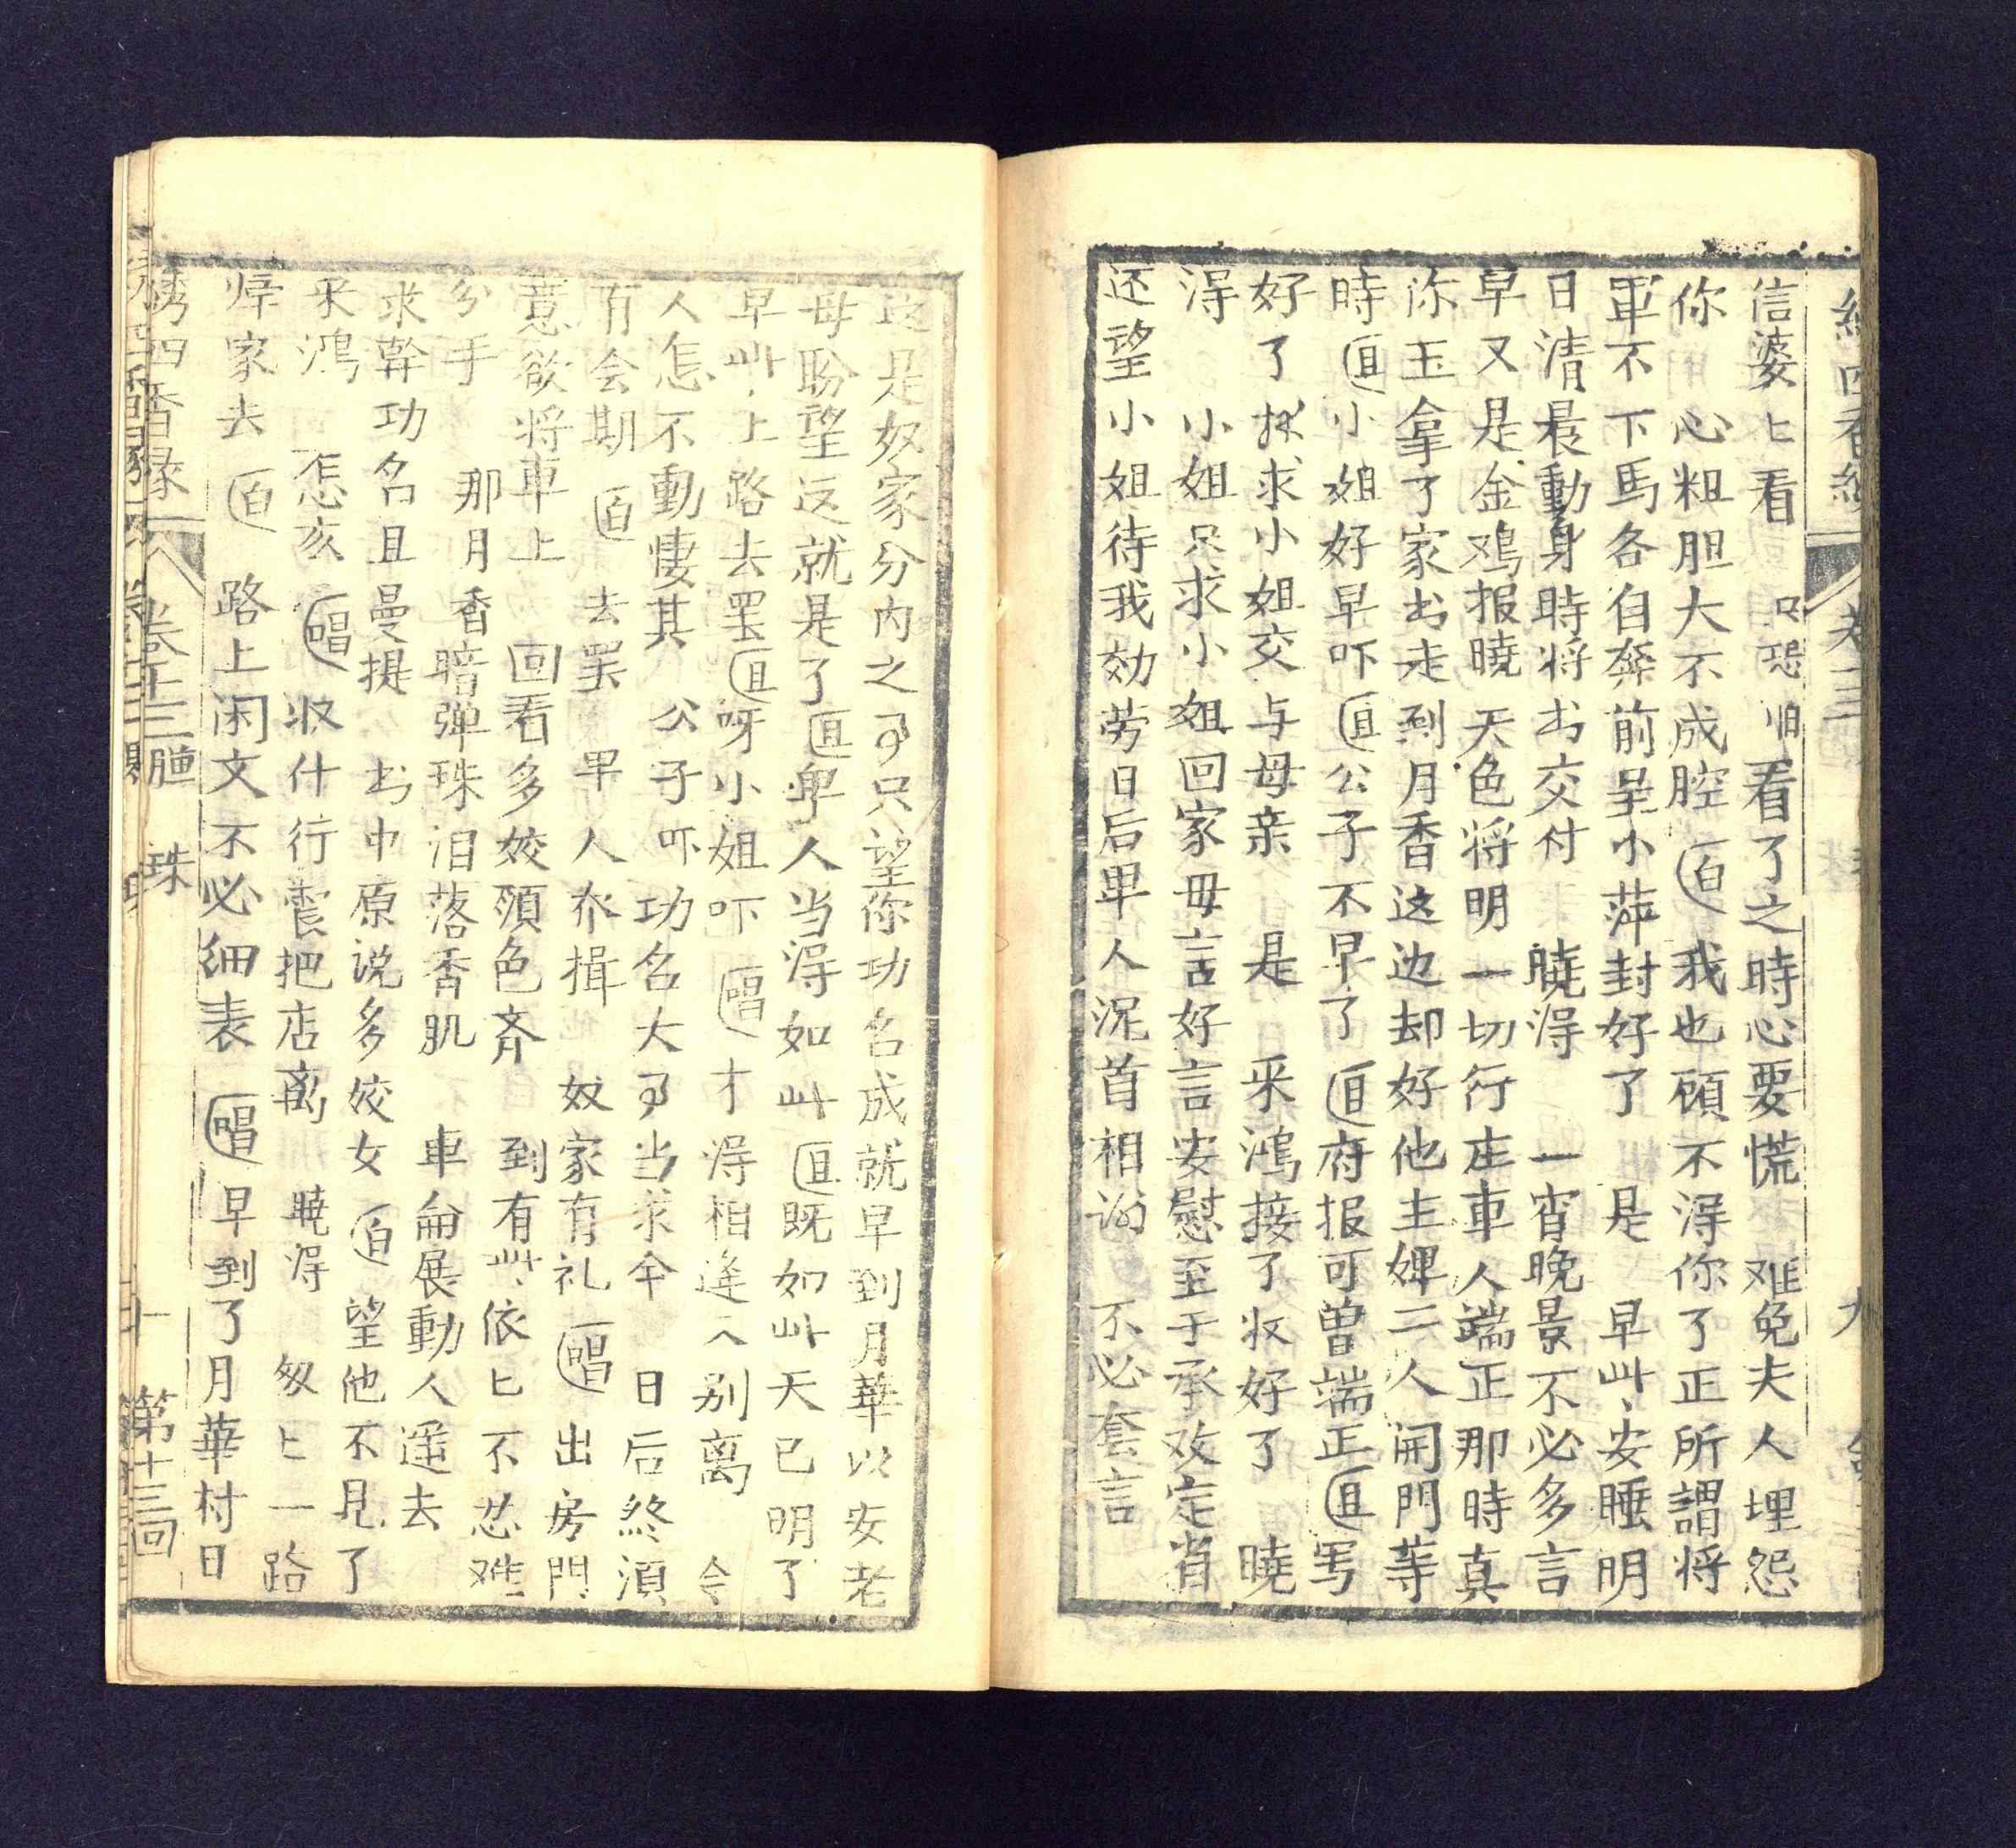 信婆匕看　只恐怕看了之時心要慌　难免夫人埋怨
你　心粗胆大不成腔　白　我也顧不淂你了正所謂将
軍不下馬各自奔前呈小萍封好了　是　早此安睡明
日清晨動身時将书交付　曉淂　一宵晚景不必多言
早又是金鳮报曉天色将明一切行庄車人端正那時真
你玉拿了家书走到月香这边却好他主婢二人開門等
時　小姐好早吓　公子不早了　府报可曽端正　写
好了拜求小姐交与母亲　是　釆鴻接了收好了　曉
淂　小姐只求小姐回家毋言好言安慰至于承攻定省
还望小姐待我効劳日后卑人泥首相　不必套言
这是奴家分内之事只望你功名成就早到月華以安老
母盼望这就是了　卑人当淂如此　既如此天已明了
早此上路去罢　呀小姐吓　唱　才淂相逢又别离　令
人怎不動悽其　公子吓功名大事当求伞　日后終湏
有会期　白　去罢　卑人奉揖　奴家有礼　唱　出房門
意欲将車上　回看多姣顔色齐　到有此依匕不忍难
分手　那月香暗弹珠泪落香肌　車侖展動人遥去
求幹功名且曼提　书中原说多姣女　白　望他不見了
釆鴻　怎亥　唱　收什行囊把店离　曉淂　匆匕一路
帰家去　白　路上闲文不必细表　唱　早到了月華村日
绣四香緣　卷十三　珠　十　第十三回